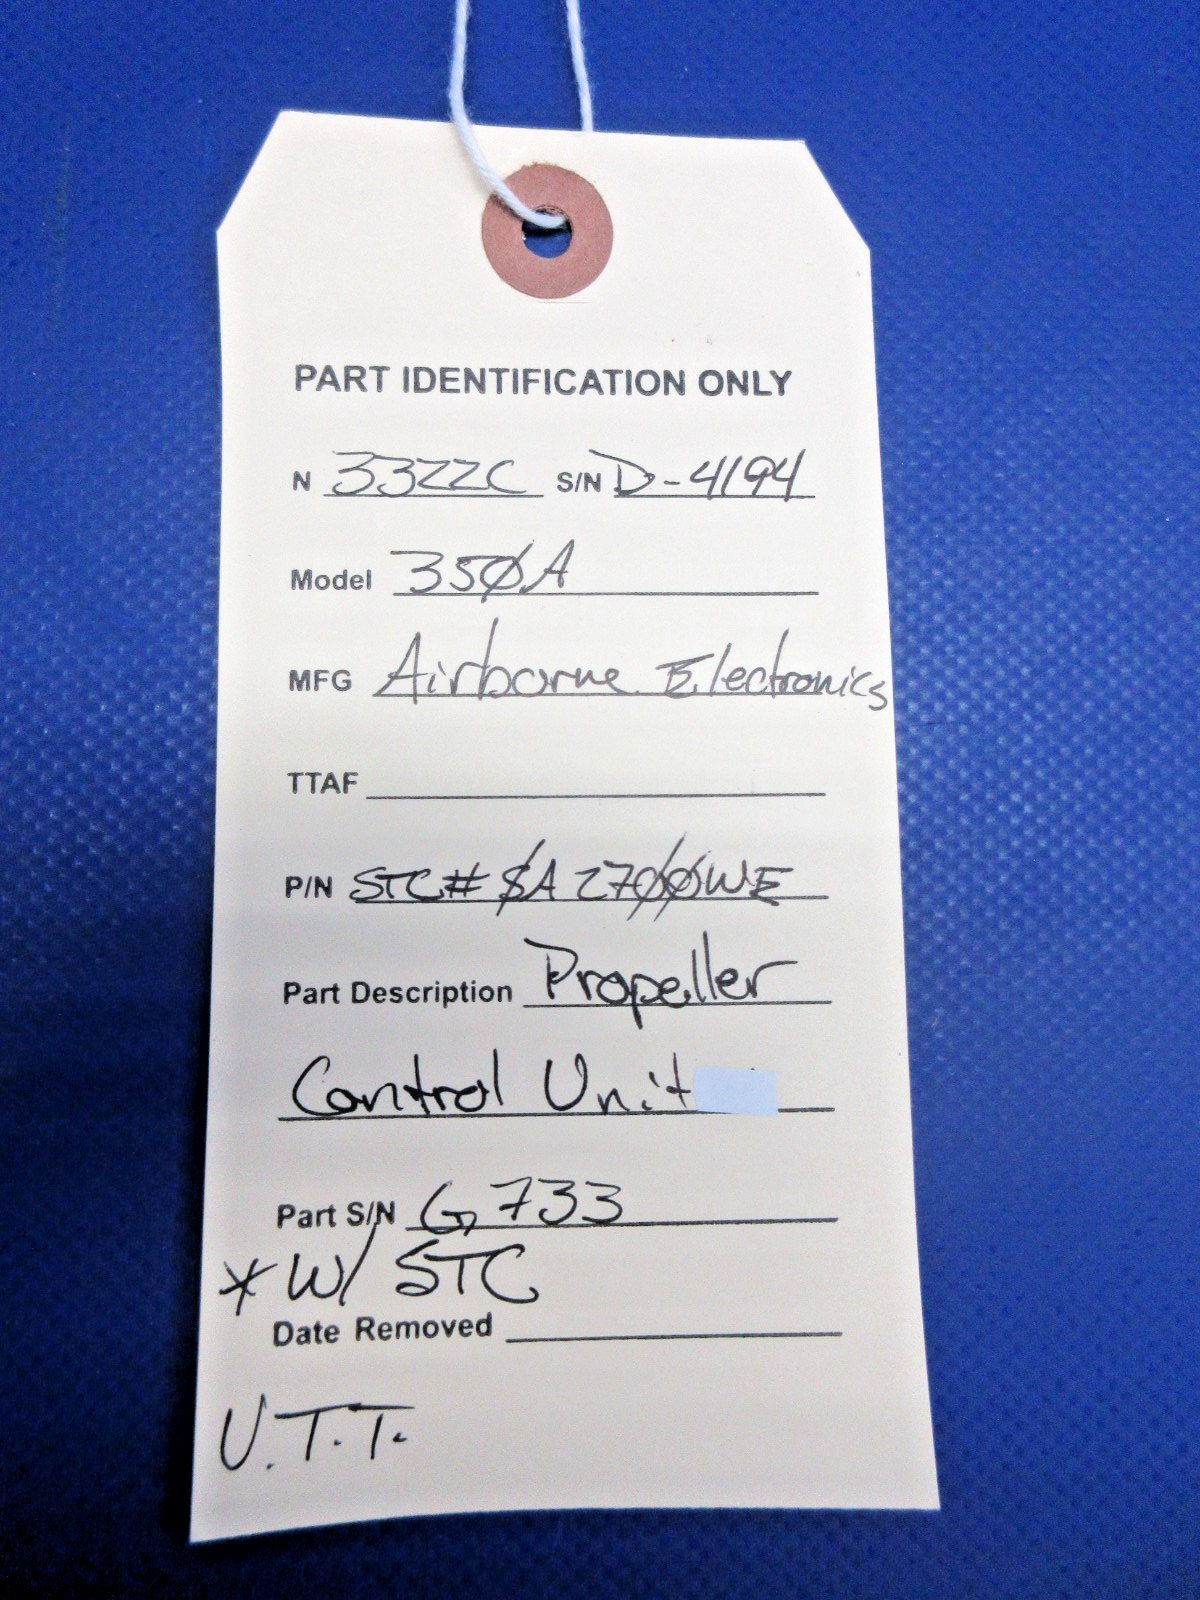 PART IDENTIFICATION ONLY
N 3322C S/N D-4194
Model 350A
MFG Airborne Electronics
TTAF
P/N STC# SA2700WE
Part Description Propeller
Control Unit
Part S/N G733
* W/ STC
Date Removed
U.T.T.